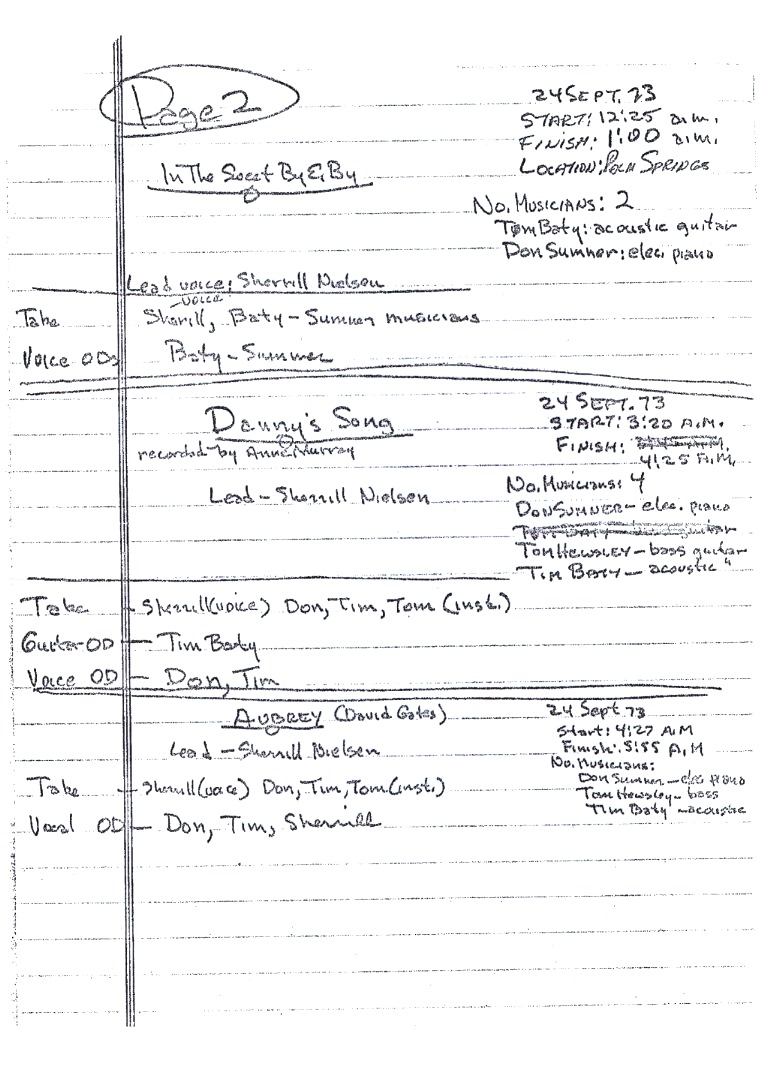 Page 2
24 SEPT. 73
START: 12:25 a.m.
FINISH: 1:00 a.m.
LOCATION: PALM SPRINGS
In The Sweet By & By
No. MUSICIANS: 2
Tom Baty: acoustic guitar
Don Sumner: elec. piano
Lead voice: Sherrill Nielsen
voice
Take Sherill, Baty - Sumner musicians
Voice ODs Baty - Summer
Danny's Song
recorded by Anne Murray
24 SEPT. 73
START: 3:20 A.M.
FINISH:
4:25 A.M.
Lead - Sherrill Nielsen
No. Musicians: 4
DON SUMNER - elec. piano
TOM HEWSLEY - bass guitar
TIM BATY - acoustic "
Take - Sherrill (voice) Don, Tim, Tom (inst.)
Guitar OD - Tim Baty
Voice OD - Don, Tim
AUBREY (David Gates)
24 Sept 73
Start: 4:27 A.M
Finish: 5:55 A.M
Lead - Sherrill Nielsen
No. Musicians:
Don Sumner - elec piano
Tom Hewsley - bass
Tim Baty - acoustic
Take - Sherrill (voice) Don, Tim, Tom (inst.)
Vocal OD - Don, Tim, Sherrill